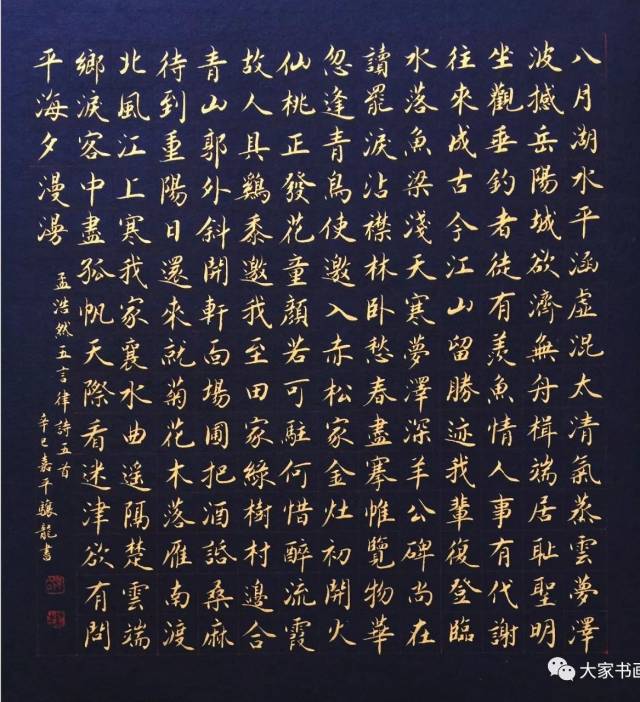 八月湖水平涵虚混太清氣蒸雲夢澤
波撼岳陽城欲濟無舟楫端居耻聖明
坐觀垂釣者徒有羨魚情人事有代謝
往來成古今江山留勝迹我輩復登臨
水落魚梁淺天寒夢澤深羊公碑尚在
讀罷淚沾襟林卧愁春盡搴帷覽物華
忽逢青鳥使邀入赤松家金灶初開火
仙桃正發花童顏若可駐何惜醉流霞
故人具鷄黍邀我至田家緑樹村邊合
青山郭外斜開軒面場圃把酒話桑麻
待到重陽日還來就菊花木落雁南渡
北風江上寒我家襄水曲遥隔楚雲端
鄉淚客中盡孤帆天際看迷津欲有問
平海夕漫漫
孟浩然五言律詩五首
辛巳嘉平驤龍書
大家书画